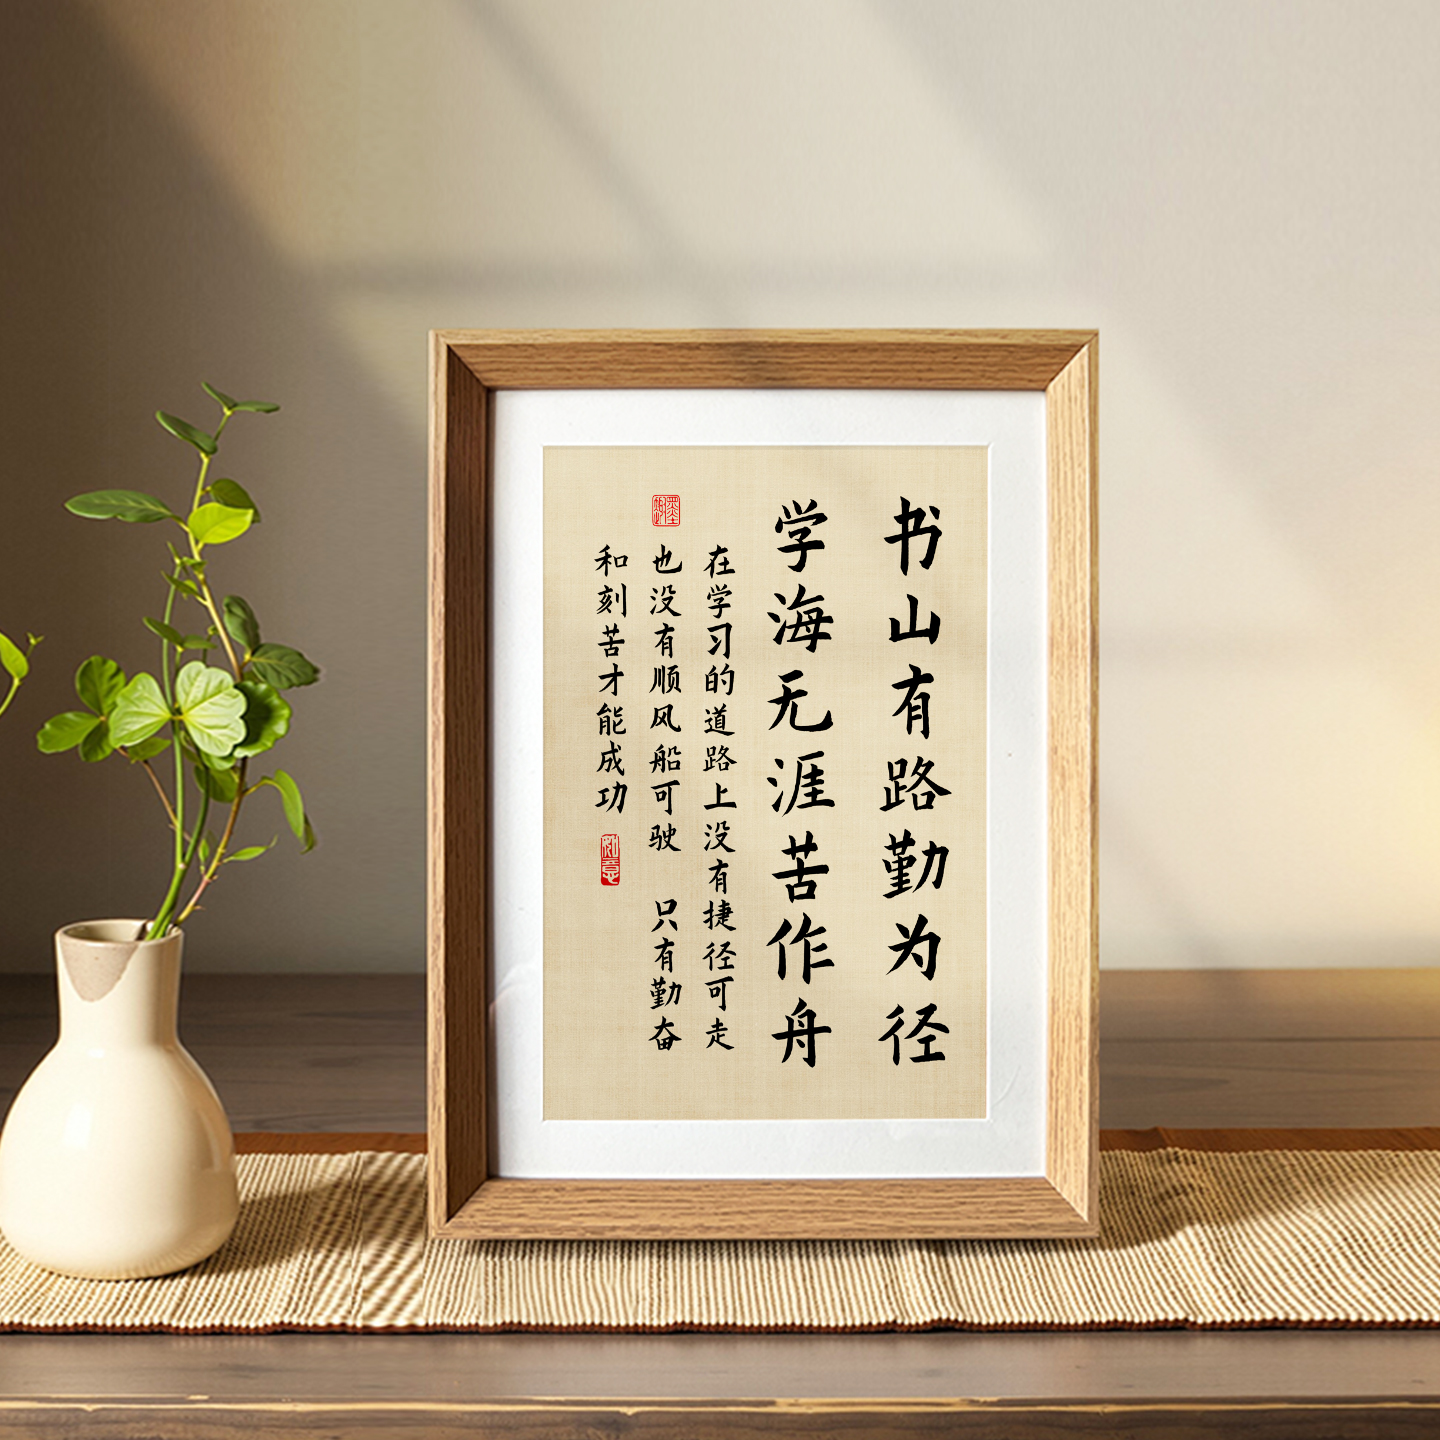 书山有路勤为径
学海无涯苦作舟
在学习的道路上没有捷径可走
也没有顺风船可驶 只有勤奋
和刻苦才能成功
如意